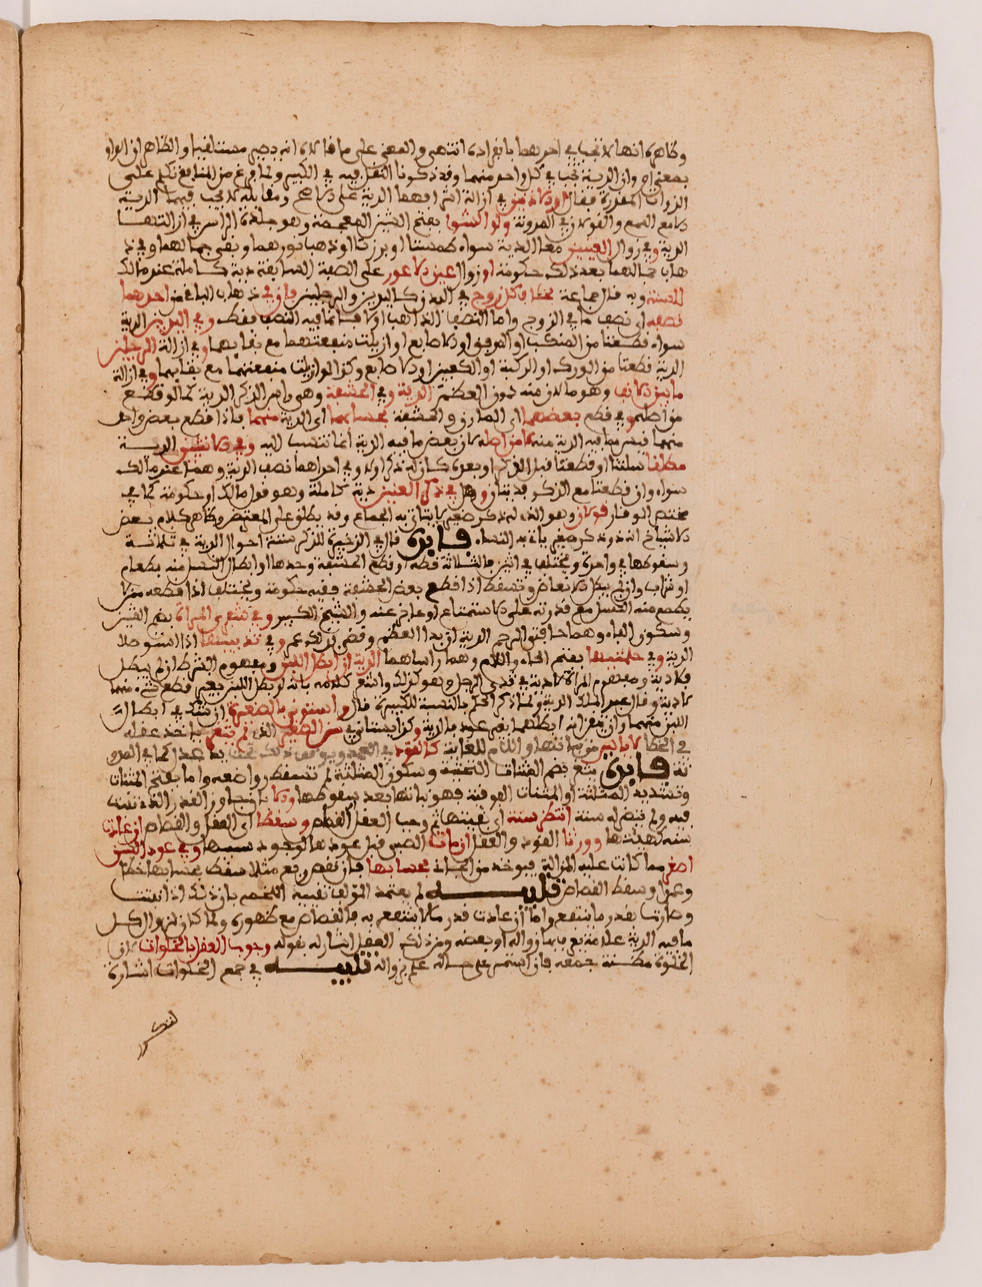 وظاهره انها لا تجب في احدهما بانفراده انتهى والمعنى على ما قالاه انه دية مستقلة والظاهر ان الواو
بمعنى او وان الدية تجب في كل واحد منهما وقد ذكرنا النقل فيه في الكبير ولما فرغ من المنافع تكلم على
الذوات المقررة فقال او الاذنين في ازالة اشرافهما الدية على الاصح ومقابله لا تجب فيهما الدية
الا مع السمع والقولان في المدونة ولو الشوا بفتح الشين المعجمة وهو جلدة الراس في ازالتها
الدية وفي زوال العينين معا الدية سواء طمستا او برزتا او ذهب نورهما وبقي جمالهما وفي ذ
هاب جمالهما بعد ذلك حكومة او زوال عين الاعور على الصفة السابقة دية كاملة عند مالك
للسنة وبه قال جماعة بخلاف كل زوج في البدن كاليدين والرجلين فان في ذهاب الباقي من احدهما
نصفه اي نصف ما في الزوج واما النصف الذاهب اولا فانما فيه النصف فقط وفي اليدين الدية
سواء قطعتا من المنكب او المرفق او الاصابع او ازيلت منفعتهما مع بقائهما وفي ازالة الرجلين
الدية قطعتا من الورك او الركبة او الكعبين او الاصابع وكذا لو ازيلت منفعتهما مع بقائهما وفي ازالة
مارن الانف وهو ما لان منه دون العظم الدية وفي الحشفة وهو راس الذكر الدية كما لو قطع
من اصله وفي قطع بعضهما اي المارن والحشفة بحسابهما اي الدية منهما فاذا قطع بعض واحد
منهما قيس مما فيه الدية منه لا من اصله لان بعض ما فيه الدية انما تنسب اليه وفي الانثيين الدية
مطلقا سلتا او قطعتا قبل الذكر او بعده كان له ذكر او لا وفي احداهما نصف الدية وهما عند مالك
سواء وان قطعتا مع الذكر فديتان وهل في ذكر العنين دية كاملة وهو قول مالك او حكومة كما في
مختصر الوقار قولان وهو الذي له ذكر صغير لا يتاتى به الجماع وقد يطلق على المعترض وظاهر كلام بعض
الاشياخ انه ذو ذكر صغير ياتي به النساء فايدة قال في الذخيرة للذكر ستة احوال الدية في ثلاثة
وسقوطها في واحدة ويختلف في اثنين فالثلاثة قطعه او قطع الحشفة وحدها او ابطال النسل منه بطعام
او شراب وان لم يبطل الانعاض وتسقط اذا قطع بعض الحشفة ففيه حكومة ويختلف اذا قطعه ممن لا
يصح منه النسل مع قدرته على الاستمتاع او عاجز عنه والشيخ الكبير وفي شفري المراة بضم الشين
وسكون الفاء وهما حافتا الرحم الدية ان بدا العظم وقضى بذلك عمر وفي ثدييها اذا استوصلا
الدية وفي حلمتيهما بفتح الحاء واللام وهما راساهما الدية ان ابطل اللبن ومفهوم الشرط ان لم يبطل
فلا دية ومفهوم المراة لا دية في ثديي الرجل وهو كذلك واشعر كلامه بانه لو بطل اللبن بغير قطع شيء منها
لا دية وقال عبد الملك الدية ولما ذكر الحكم بالنسبة للكبيرة قال واستوني بالصغيرة ان شك في ابطال
اللبن منهما وان تيقن انه ابطلهما بغير عود فالدية وكذا يستانى في سن الصغير الذي لم يثغر فيوخذ عقله
في الخطا للاياس من نباتها واللام للغاية كالقود في العمد ويوقف ذلك تحت يد عدل كما في المدو
نة فايدة يثغر بضم المثناة التحتية وسكون المثلثة لم تسقط رواضعه واما بفتح المثناة
وتشديد المثلثة او المثناة الفوقية فهو نباتها بعد سقوطها والا بان جاوز القدر الذي تنبت
فيه ولم تنبت له سنة انتظر سنة اي بقيتها ثم وجب العقل او القصاص وسقطا اي العقل والقصاص ان عادت
سنه كهيئتها وورثا القود والعقل ان مات الصبي قبل عودها لوجود سببها وفي عود السن
اصغر مما كانت عليه المزالة فيوخذ من الجاني بحسابها فان نقص ربع مثلا سقط بحسابها خطا
وعمدا وسقط القصاص تنبيه لم يعتمد المولف تقييد اللخمي بان ذلك اذا نبتت
وصارت بقدر ما ينتفع واما ان عادت قدر ما لا ينتفع به فالقصاص مع ظهوره ولما كان لزوال كل
ما فيه الدية علامة يعرف بها زواله او بعضه ومن ذلك العقل اشار له بقوله وجرب العقل بالخلوات لان
الخلوة مظنة جمعه فان استمر على حاله علم زواله تنبيه في جمع الخلوات اشارة